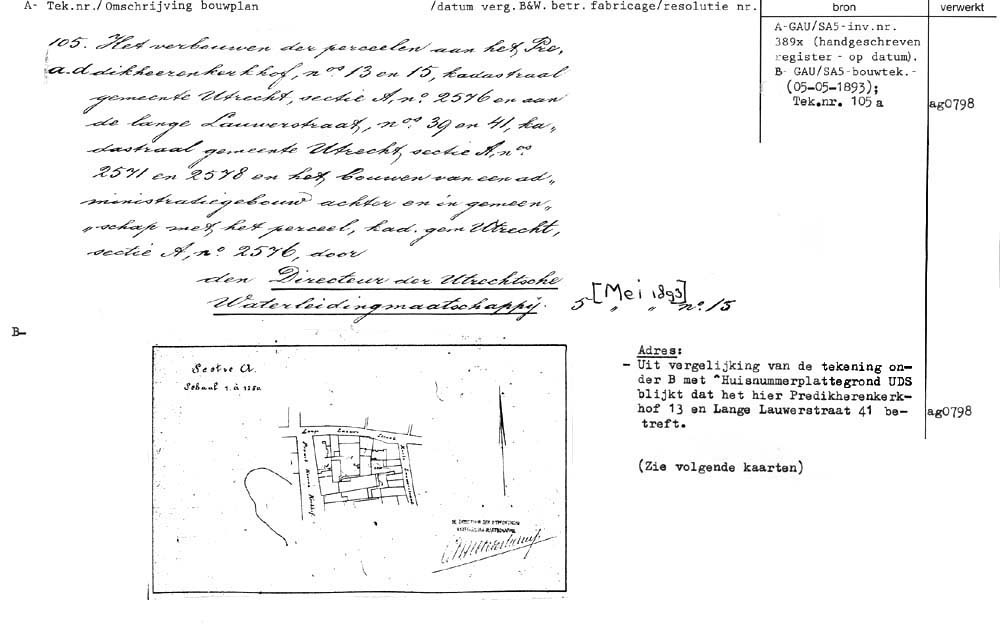 A- Tek.nr./Omschrijving bouwplan /datum verg.B&W. betr. fabricage/resolutie nr. bron verwerkt
105. Het verbouwen der perceelen aan het Pre„
a.d dikheerenkerkhof, nos 13 en 15, kadastraal
gemeente Utrecht, sectie A, no. 2576 en aan
de lange Lauwerstraat, nos 39 en 41, ka„
dastraal gemeente Utrecht, sectie A, nos
2571 en 2578 en het bouwen van een ad„
ministratiegebouw achter en in gemeen„
„schap met het perceel, kad. gem Utrecht,
sectie A, no. 2576, door
den Directeur der Utrechtsche
Waterleidingmaatschappij. 5 [Mei 1893] „ „ no. 15
A-GAU/SA5-inv.nr.
389x (handgeschreven
register - op datum).
B- GAU/SA5-bouwtek.-
(05-05-1893);
Tek.nr. 105a
ag0798
B-
Sectie A.
Schaal 1 à 1250
Lange Lauwer Straat
DE DIRECTEUR DER UTRECHTSCHE
WATERLEIDINGMAATSCHAPPIJ
Adres:
- Uit vergelijking van de tekening on-
der B met "Huisnummerplattegrond UDS
blijkt dat het hier Predikherenkerk-
hof 13 en Lange Lauwerstraat 41 be-
treft.
ag0798
(Zie volgende kaarten)